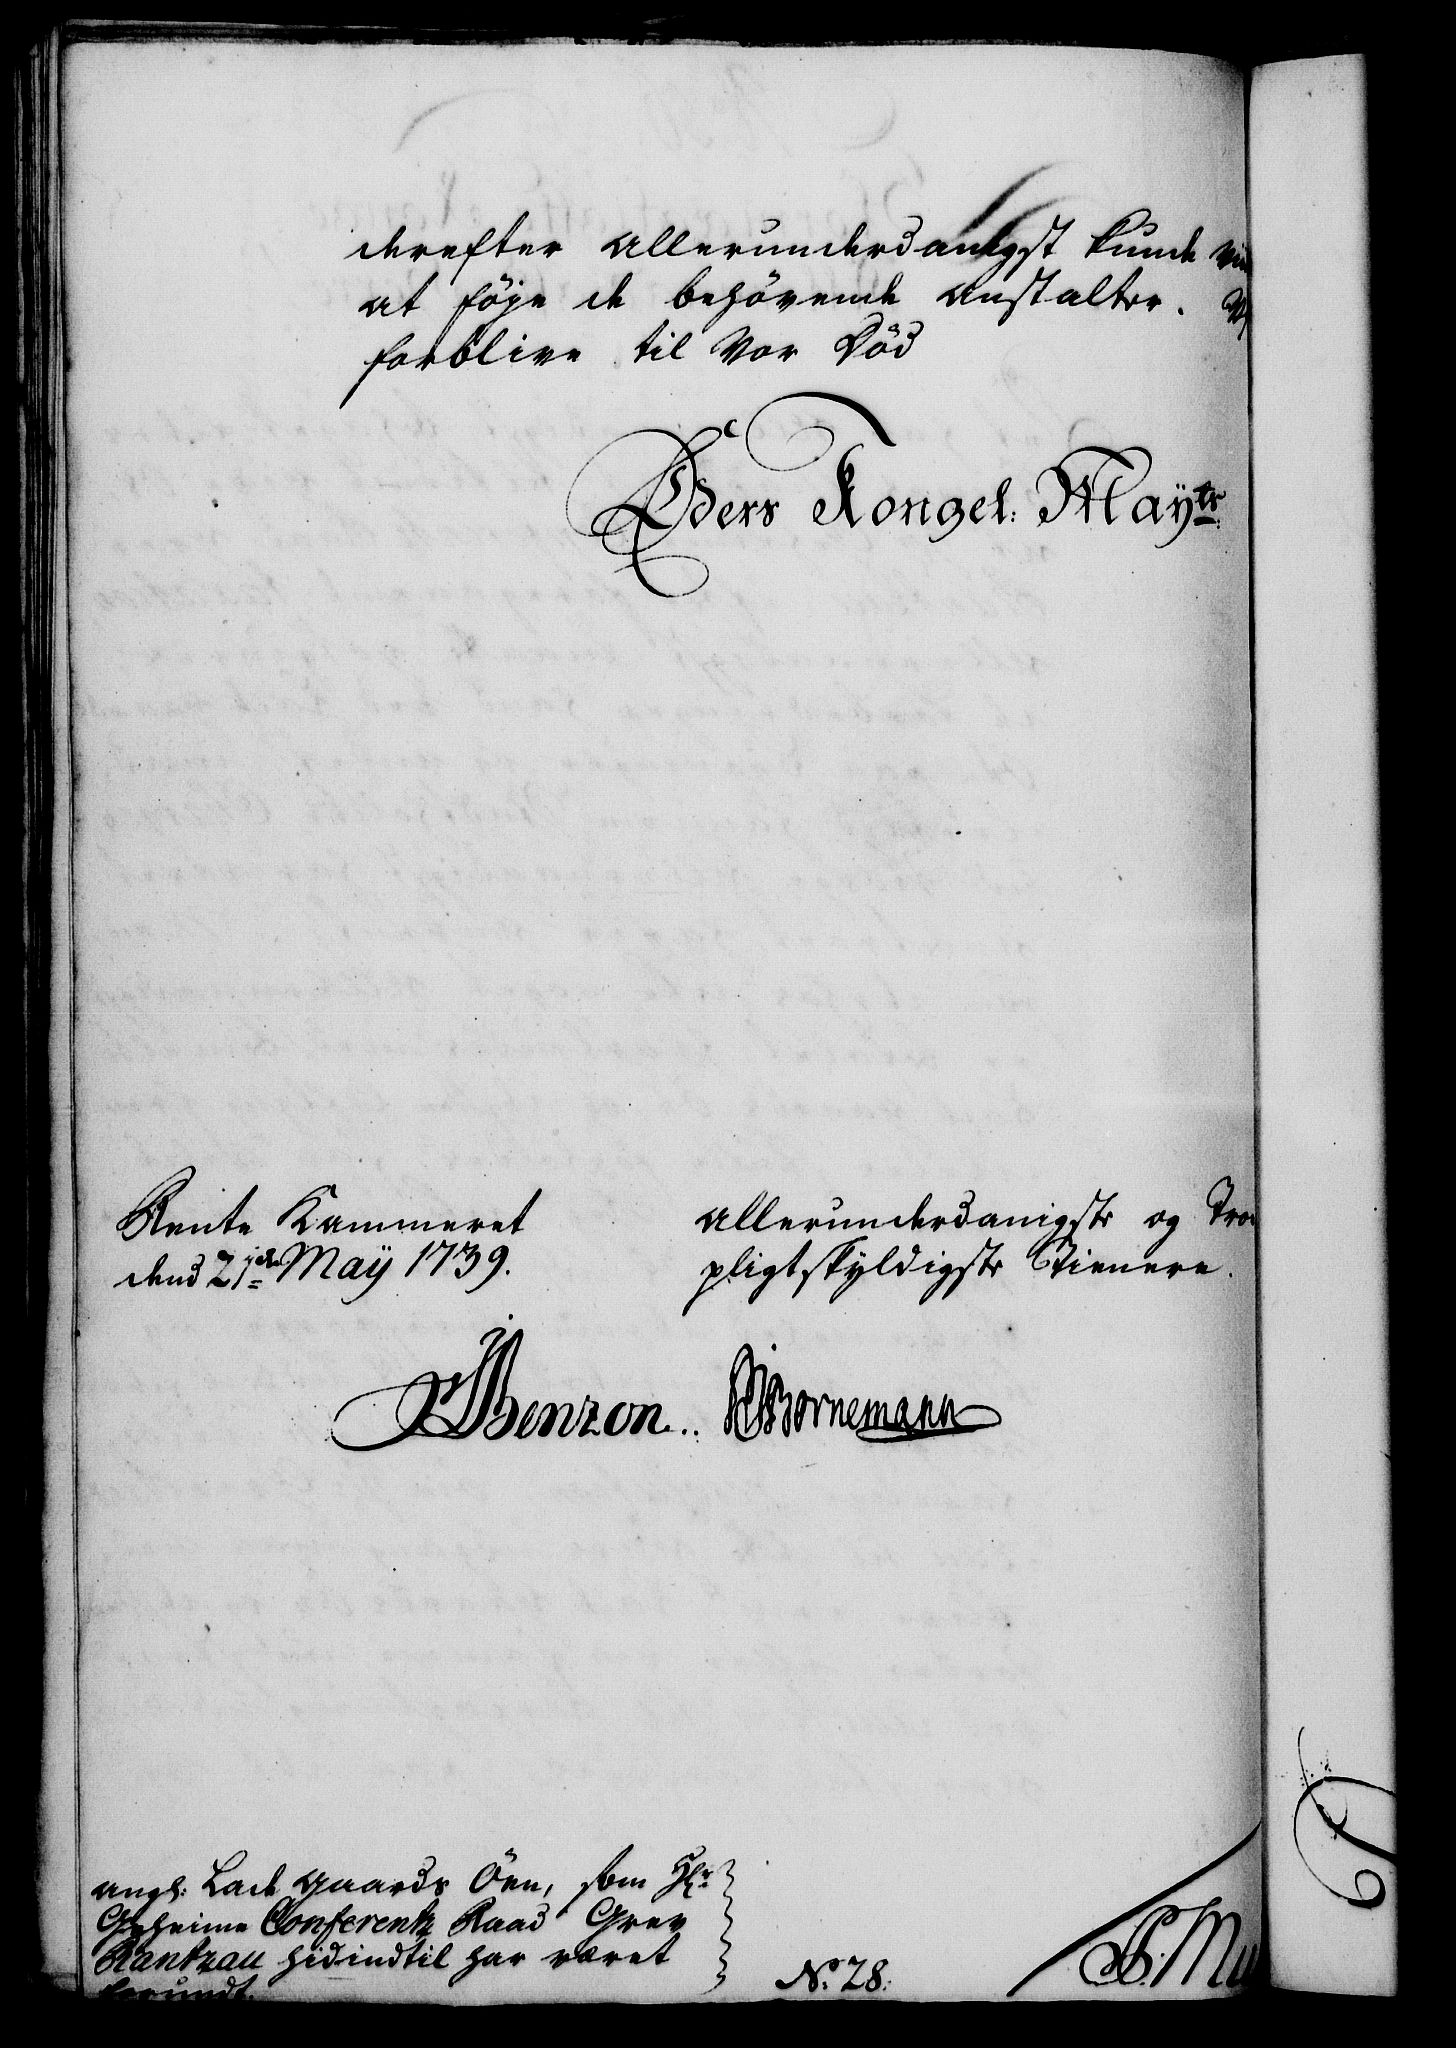 derefter allerunderdanigst kunde
at føye de behövende anstalter.
forblive til Vor Död
Eders Kongel: Mayts
Rente Kammeret
dend 21de May 1739.
allerunderdanigste og Troe
pligtskyldigste Tienere.
Benzon.. Bornemann
angl: Lade gaards Öen, som Hr
Geheime Conferentz Raad Grev
Rantzau hidindtil har været
forundt.
No. 28.